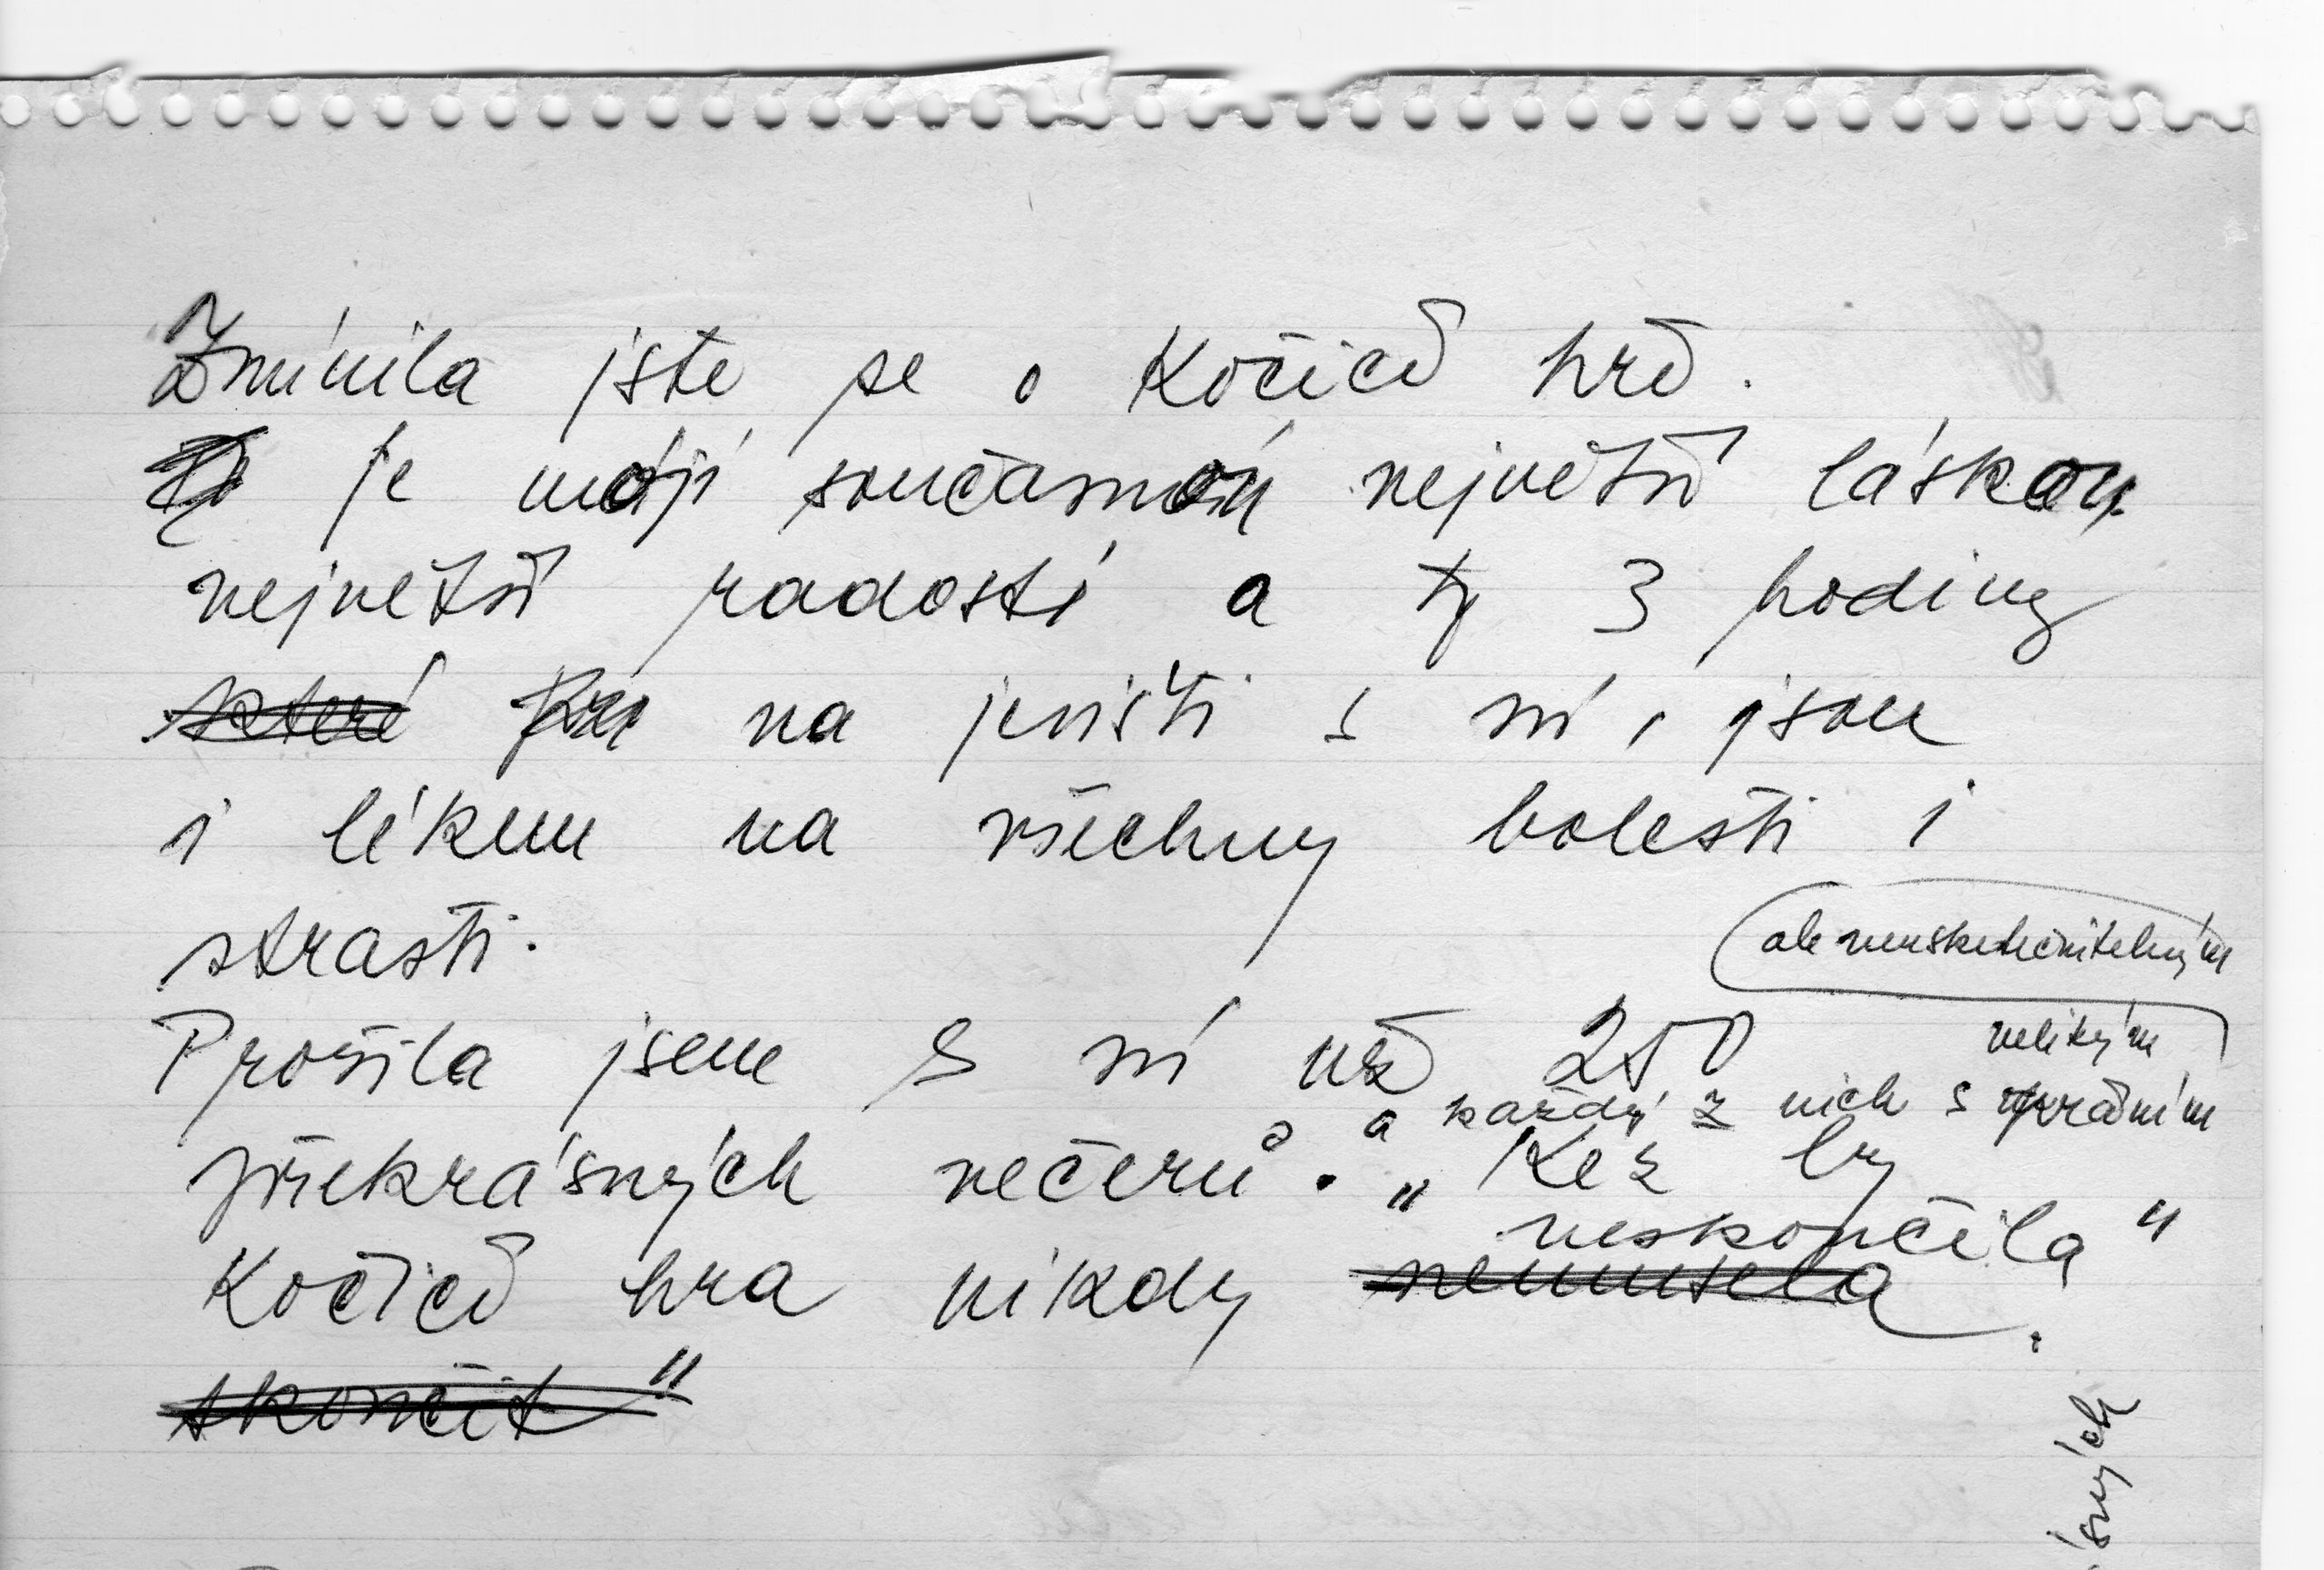 Zmínila jste se o Kočičí hře.
je mojí současnou největší láskou
největší radostí a ty 3 hodiny
které na jevišti s ní, jsou
i lékem na všechny bolesti i
strasti.
ale neuskutečnitelným
Prožila jsem s ní už 250
velikým
a každý z nich s přáním
překrásných večerů. „Kéž by
neskončila“
Kočičí hra nikdy nemusela.
skončit“
ásných